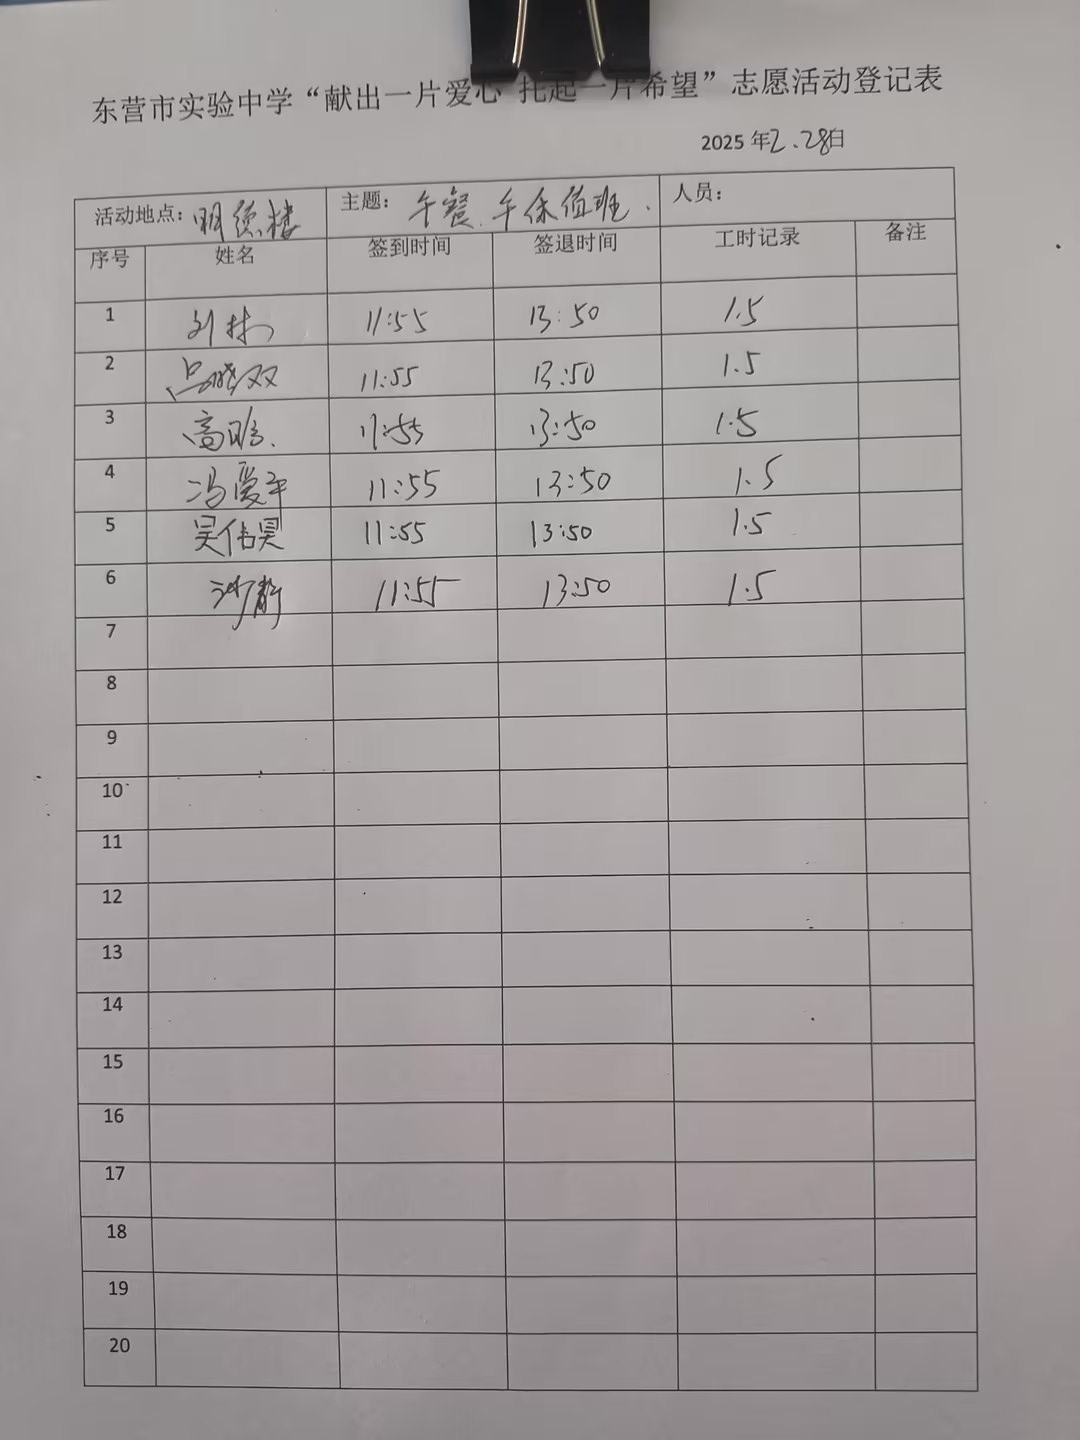 东营市实验中学“献出一片爱心 托起一片希望”志愿活动登记表
2025 年2.28日
活动地点：明德楼 主题：午餐.午休值班. 人员：
序号 姓名 签到时间 签退时间 工时记录 备注
1 刘林 11:55 13:50 1.5
2 晓双 11:55 13:50 1.5
3 高 11:55 13:50 1.5
4 冯爱平 11:55 13:50 1.5
5 吴伟昊 11:55 13:50 1.5
6 沙静 11:55 13:50 1.5
7
8
9
10
11
12
13
14
15
16
17
18
19
20